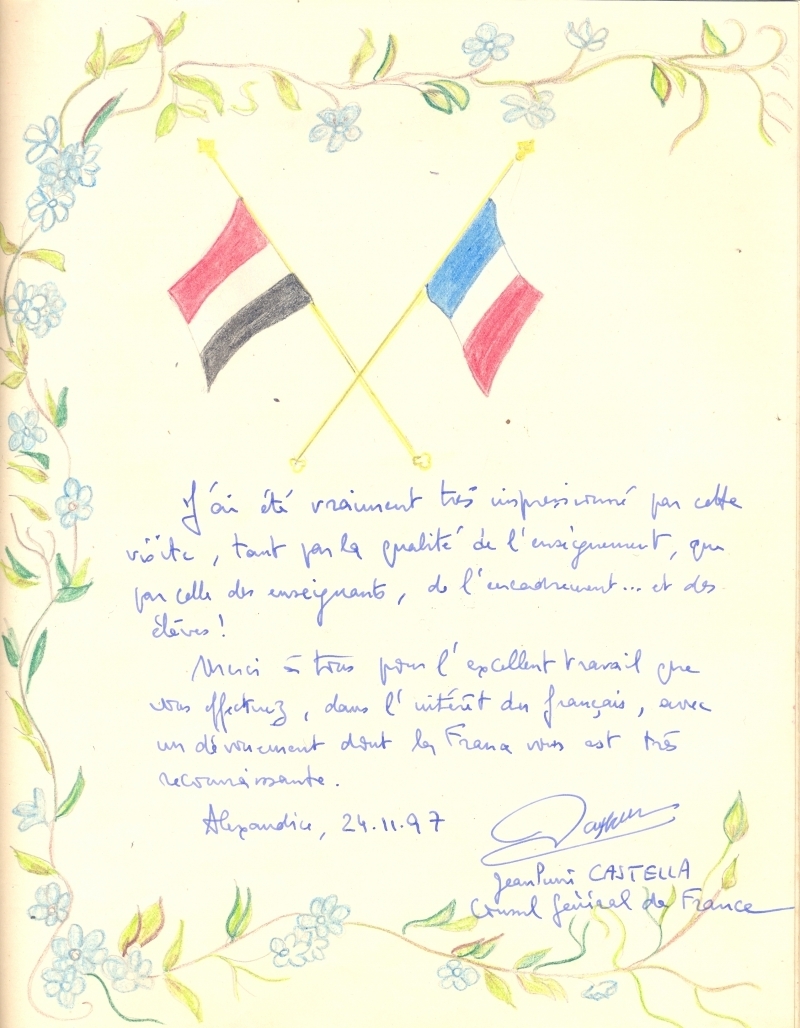 J'ai été vraiment très impressionné par cette
visite, tant par la qualité de l'enseignement, que
par celle des enseignants, de l'encadrement... et des
élèves!
Merci à tous pour l'excellent travail que
vous effectuez, dans l'intérêt du français, avec
un dévouement dont la France vous est très
reconnaissante.
Alexandrie, 24.11.97
Jean Pierre CASTELLA
Consul Général de France